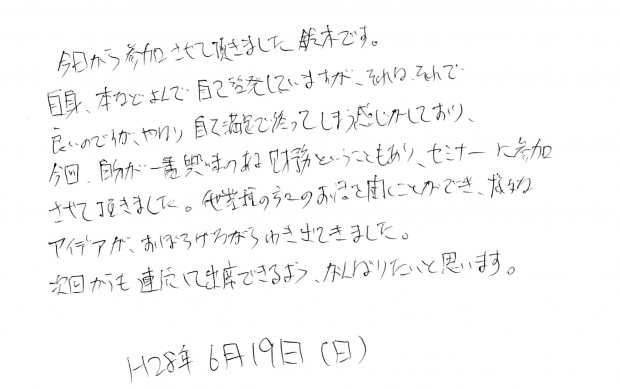 今日から参加させて頂きました鈴木です。
自身、本などよんで自己啓発していますが、それは、それで
良いのですが、やはり自己満足で終ってしまう感じがしており、
今回、自分が一番興味のある財務ということもあり、セミナーに参加
させて頂きました。他業種の方々のお話を聞くことができ、いろいろな
アイデアが、おぼろげながらわき出てきました。
次回からも連続して出席できるよう、がんばりたいと思います。
H28年 6月19日(日)